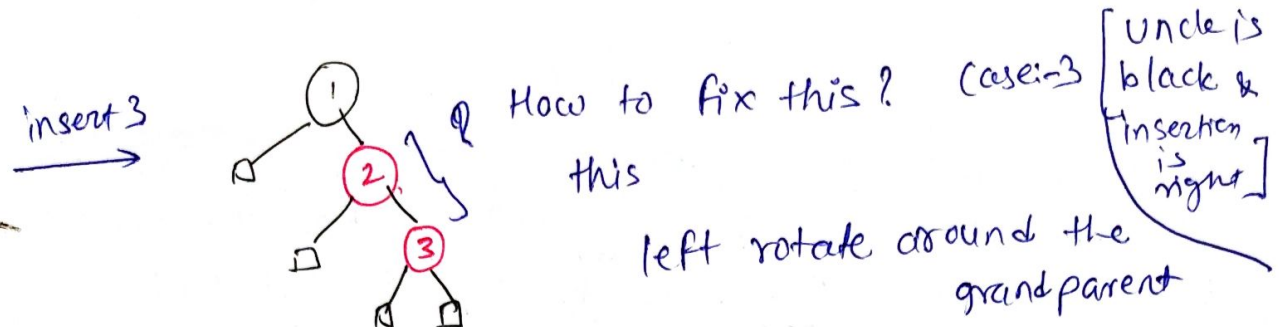 insert 3
1
2
3
? How to fix this? Case:-3 [uncle is
black &
insertion
is
right]
this
left rotate around the
grandparent